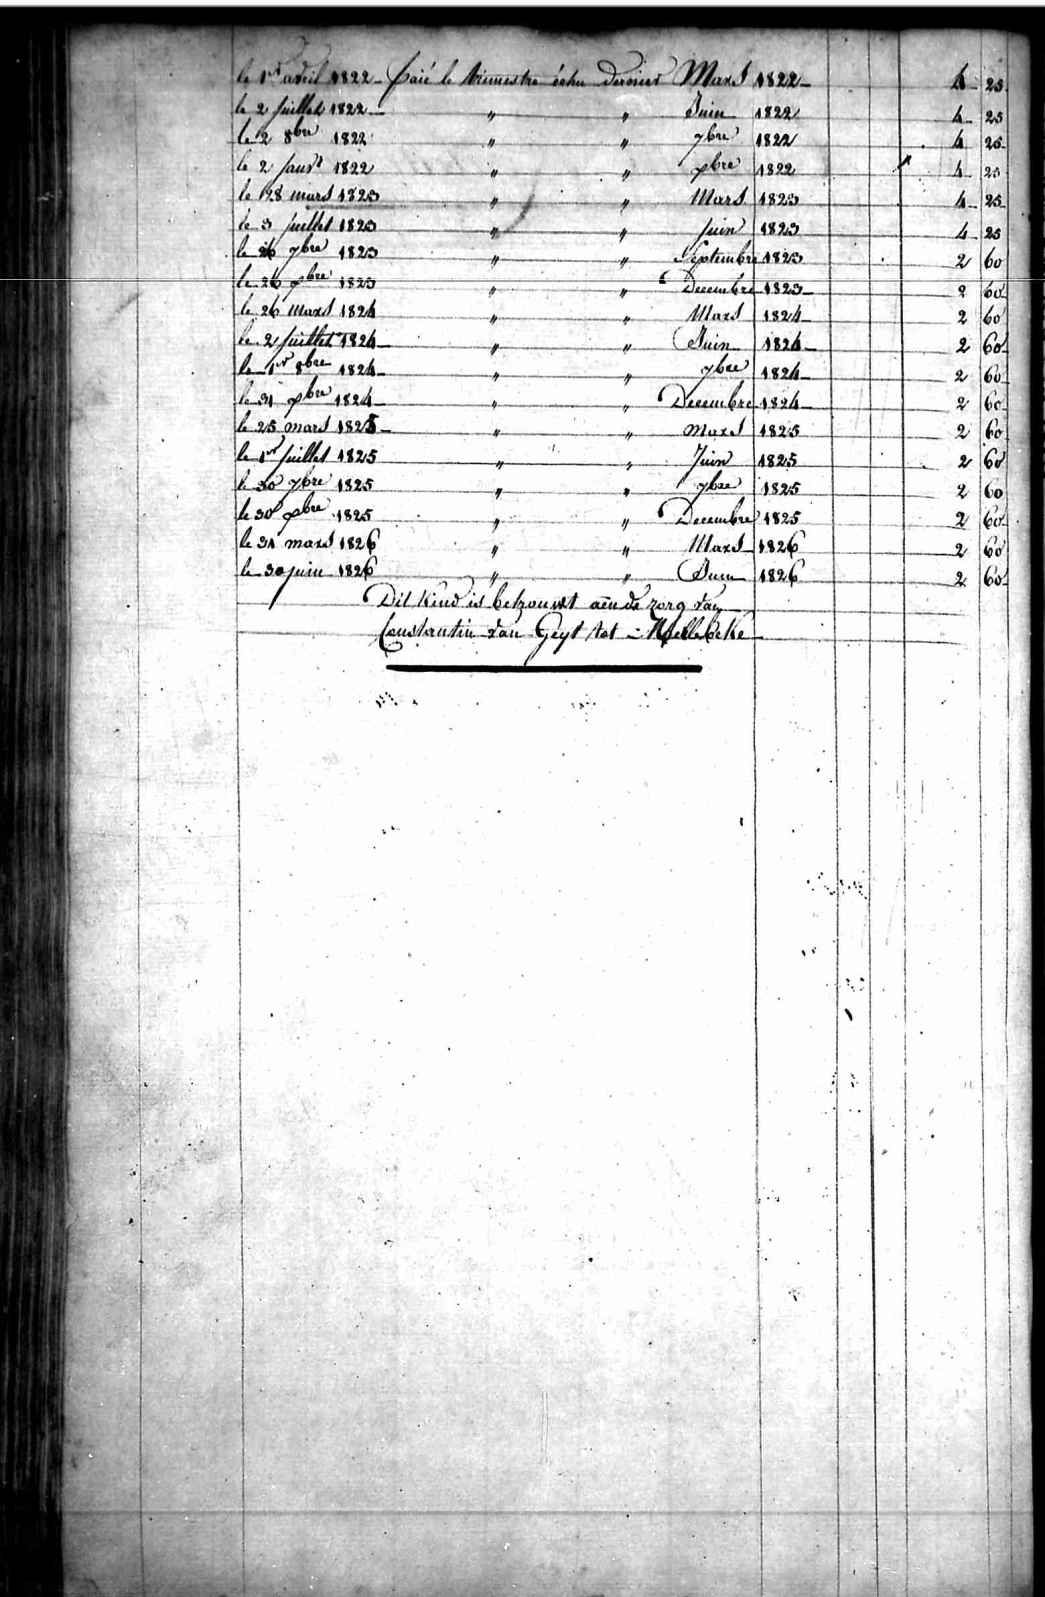 le 1r avril 1822 - Paié le trimestre échu dernier Mars 1822 - 4 25
le 2 juillet 1822 - " " Juin 1822 4 25
le 2 8bre 1822 " " 7bre 1822 4 25
le 2 janvr 1822 " " xbre 1822 4 25
le 28 mars 1823 " " Mars 1823 4 25
le 3 juillet 1823 " " juin 1823 4 25
le 26 7bre 1823 " " Septembre 1823 2 60
le 26 xbre 1823 " " Decembre 1823 2 60
le 26 Mars 1824 " " Mars 1824 2 60
le 2 juillet 1824 " " Juin 1824 2 60
le 1r 8bre 1824 " " 7bre 1824 2 60
le 31 xbre 1824 " " Decembre 1824 2 60
le 25 mars 1825 - " " Mars 1825 2 60
le 1r juillet 1825 " " Juin 1825 2 60
le 30 7bre 1825 " " 7bre 1825 2 60
le 30 xbre 1825 " " Decembre 1825 2 60
le 31 mars 1826 " " Mars 1826 2 60
le 30 juin 1826 " " Juin 1826 2 60
Dit kind is betrouwt aen de zorg van
Constantin van Geyt tot - Mellebeke